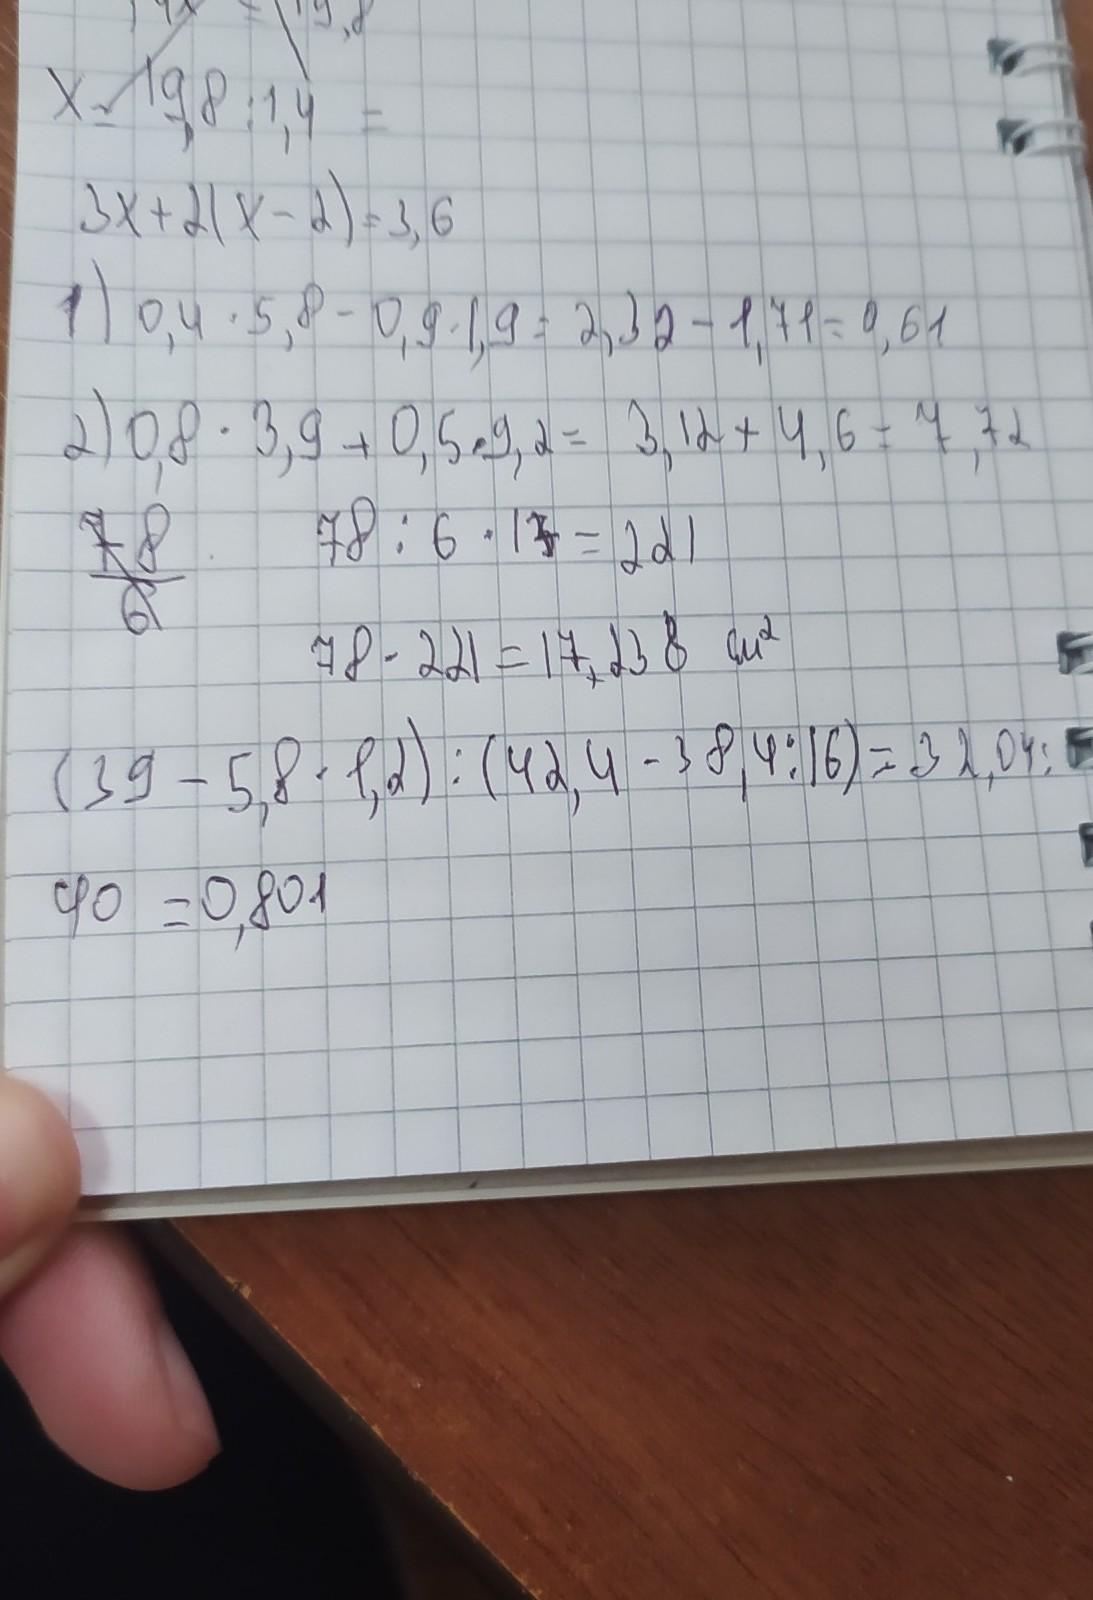 = 19,8
x = 19,8 : 1,4 =
3x+2(x-2)=3,6
1) 0,4 · 5,8 - 0,9 · 1,9 = 2,32 - 1,71 = 0,61
2) 0,8 · 3,9 + 0,5 · 9,2 = 3,12 + 4,6 = 7,72
78/6 78 : 6 · 17 = 221
78 · 221 = 17,238 см²
(39 - 5,8 · 1,2) : (42,4 - 38,4 : 16) = 32,04 :
40 = 0,801